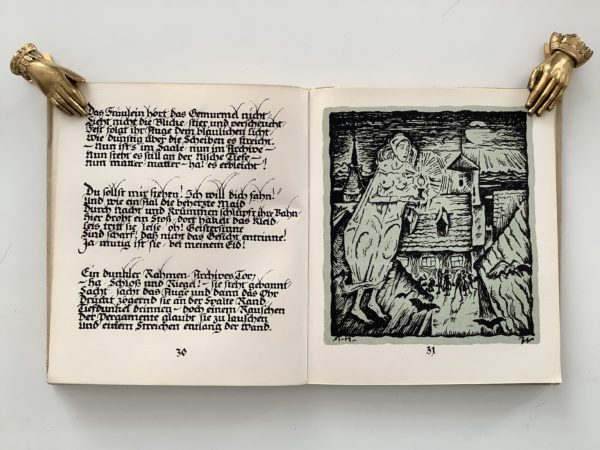 Das Fräulein hört das Gemurmel nicht
Sieht nicht die Blicke stier und verscheucht
Fest folgt ihr Auge dem bläulichen Licht
Wie dunstig über die Scheiben es streicht
– nun ist's im Saale – nun im Archive –
nun steht es still an der Nische Tiefe –
nun matter · matter – ha! es erbleicht!
Du sollst mir stehen! Ich will dich fahn!
und wie ein Aal die beherzte Maid
Durch Nacht und Krümmen schlüpft ihre Bahn
Hier droht ein Stoß · dort häkelt das Kleid
Leis tritt sie · leise · oh! Geistersinne
Sind scharf! daß nicht das Gesicht entrinne!
Ja · mutig ist sie · bei meinem Eid!
Ein dunkler Rahmen · Archives Tor;
– ha · Schloß und Riegel! – sie steht gebannt
Sacht · sacht das Auge und dann das Ohr
Drückt zögernd sie an der Spalte Rand
Tiefdunkel drinnen – doch einem Rauschen
Der Pergamente glaubt sie zu lauschen
und einem Streichen entlang der Wand.
30
31